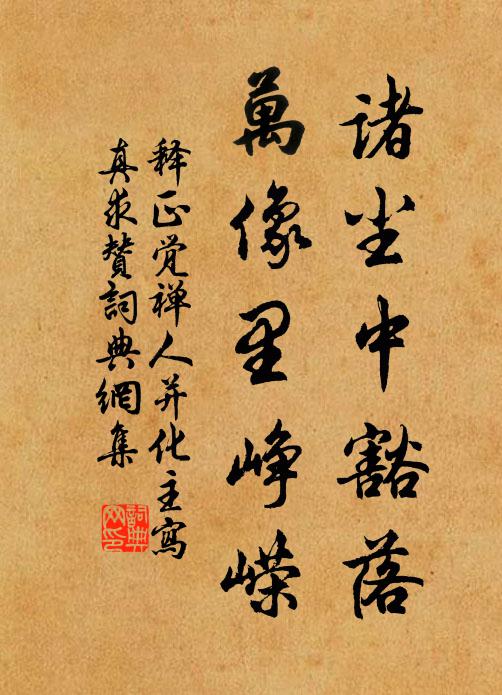 诸尘中豁落
萬像里峥嵘
释正觉禅人并化主寫
真求賛詞典網集
詞典網印